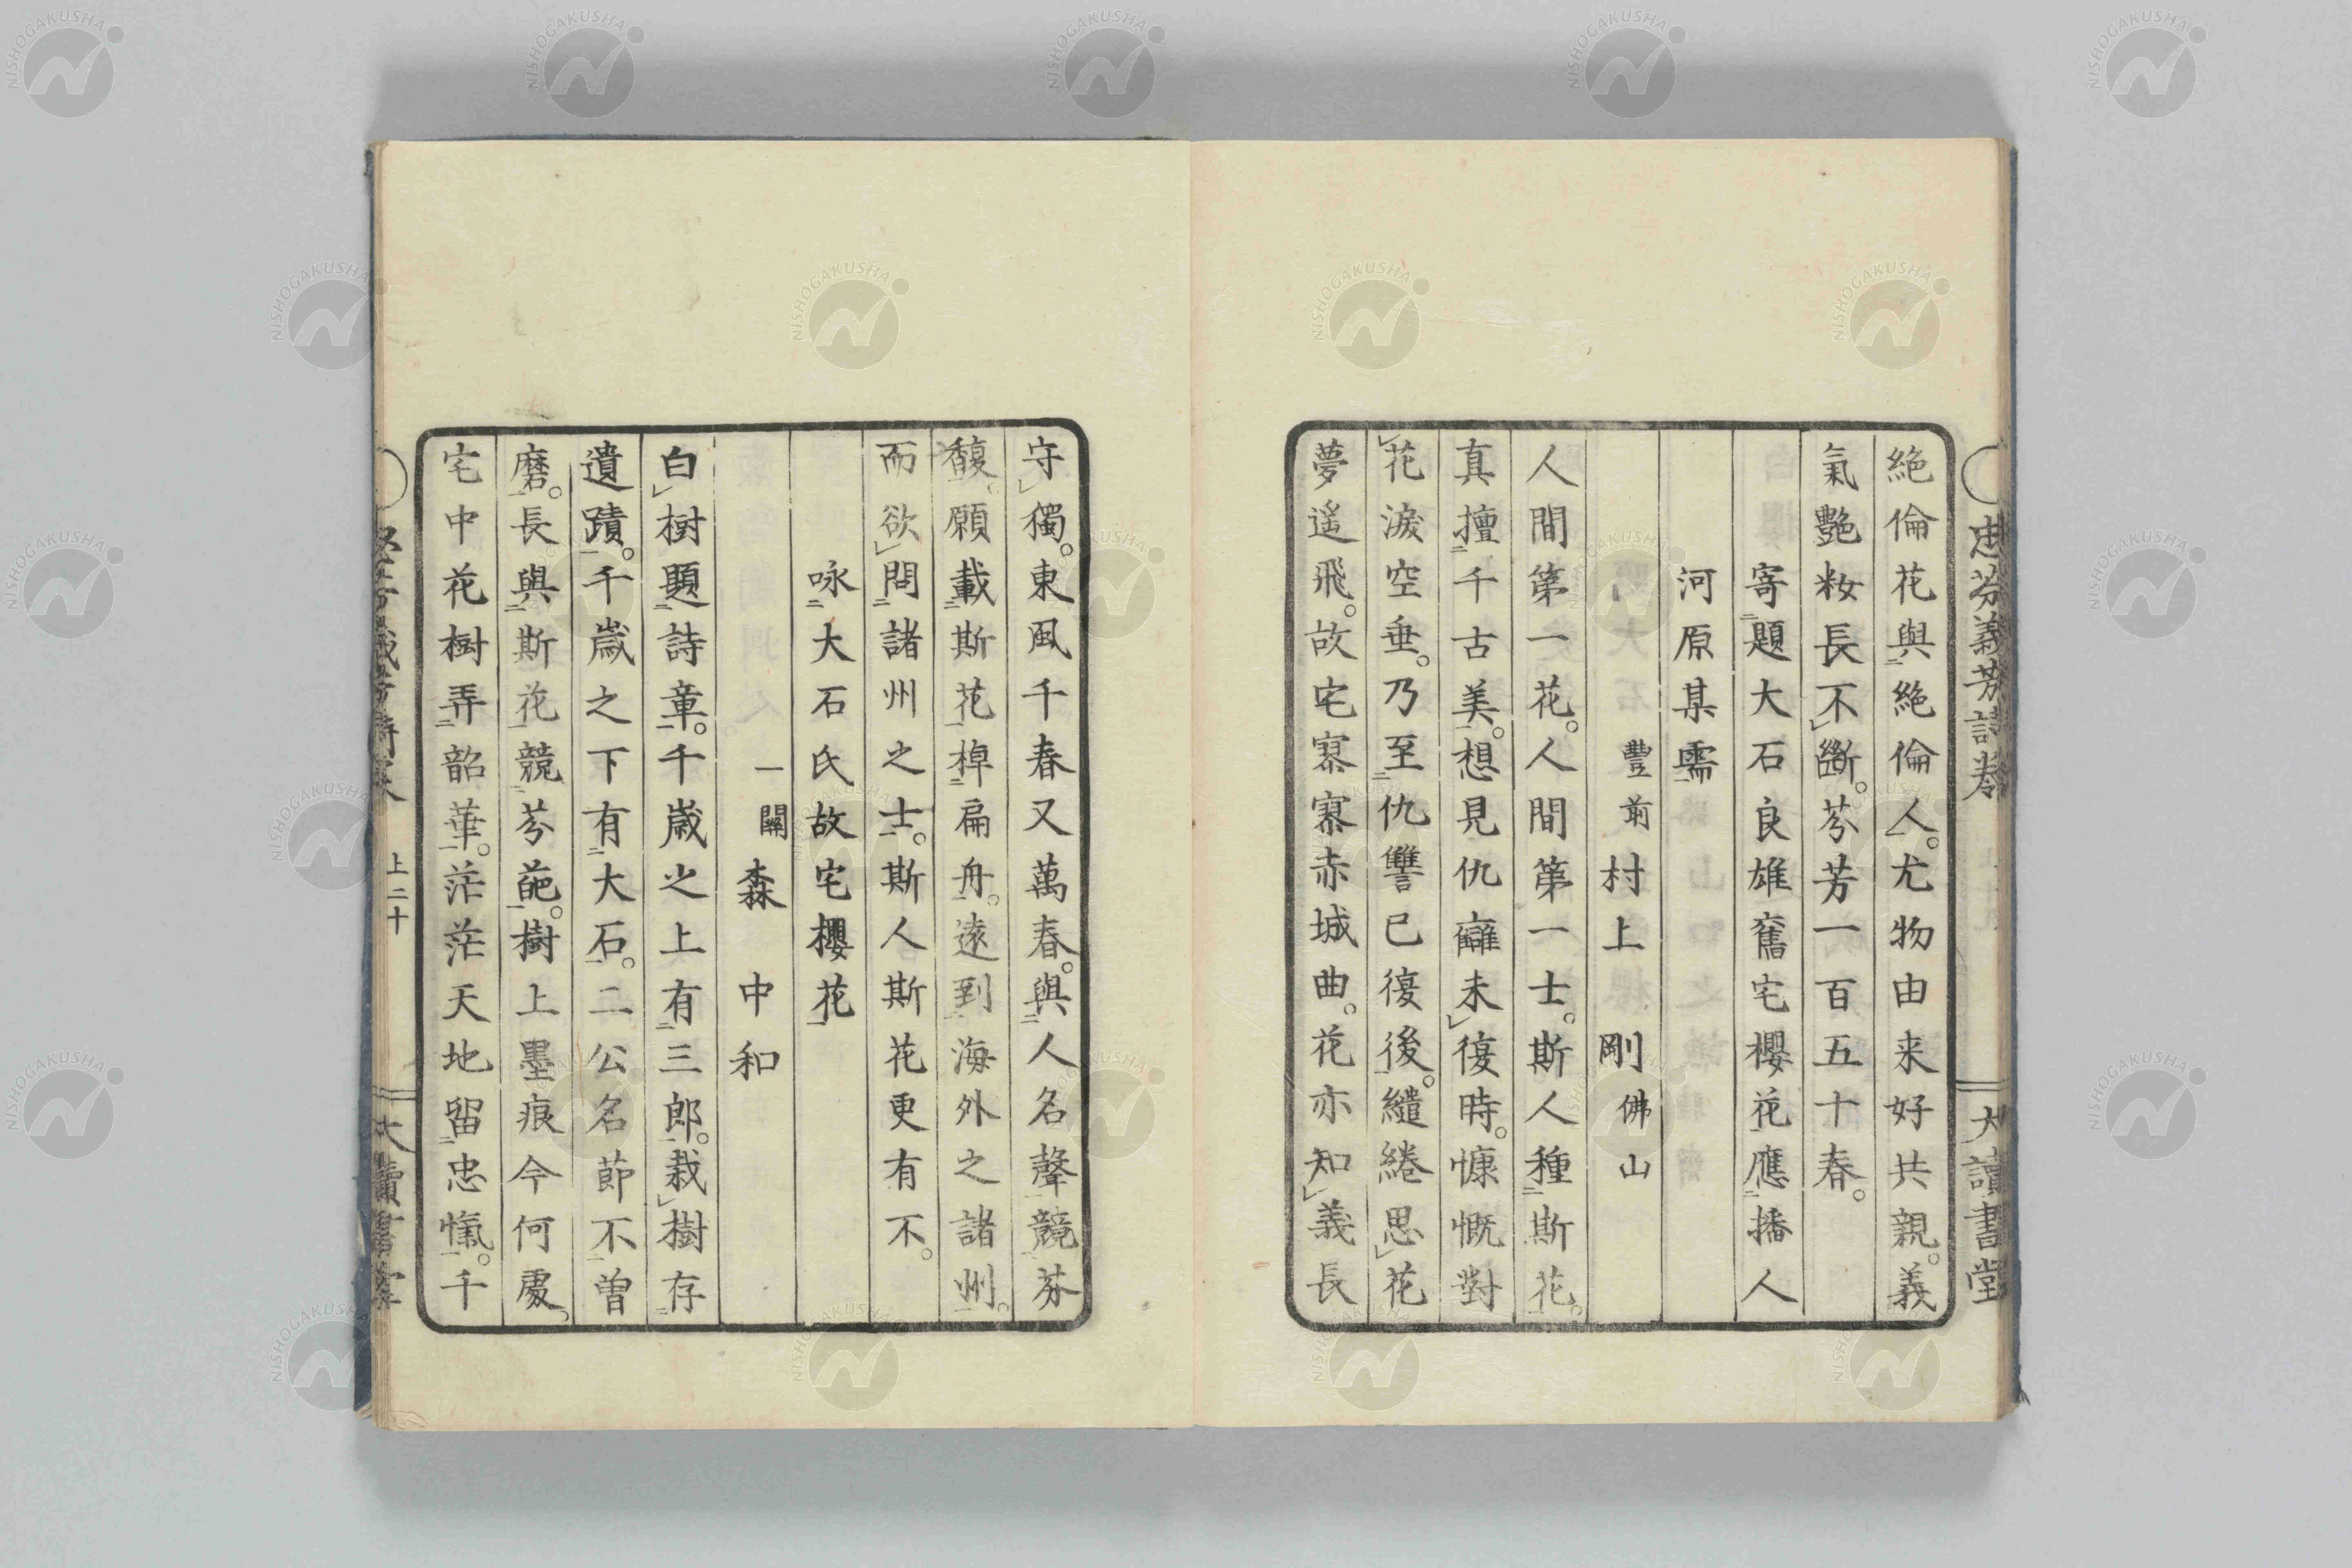 忠芬義芳詩卷
大讀書堂
絶倫花與絶倫人。尤物由来好共親。義
氣艷粧長不斷。芬芳一百五十春。
寄題大石良雄舊宅櫻花應播人
河原某需
豐前村上剛佛山
人間第一花。人間第一士。斯人種斯花。
真擅千古美。想見仇讎未復時。慷慨對
花淚空垂。乃至仇讐已復後。繾綣思花
夢遙飛。故宅寥寥赤城曲。花亦知義長
守獨。東風千春又萬春。與人名聲競芬
馥。願載斯花棹扁舟。遠到海外之諸州。
而欲問諸州之士。斯人斯花更有不。
咏大石氏故宅櫻花
一關森中和
白樹題詩章。千歲之上有三郎。栽樹存
遺蹟。千歲之下有大石。二公名節不曾
磨。長與斯花競芬葩。樹上墨痕今何處。
宅中花樹弄韶華。茫茫天地留忠愾。千
上二十
大讀書堂
NISHOGAKUSHA